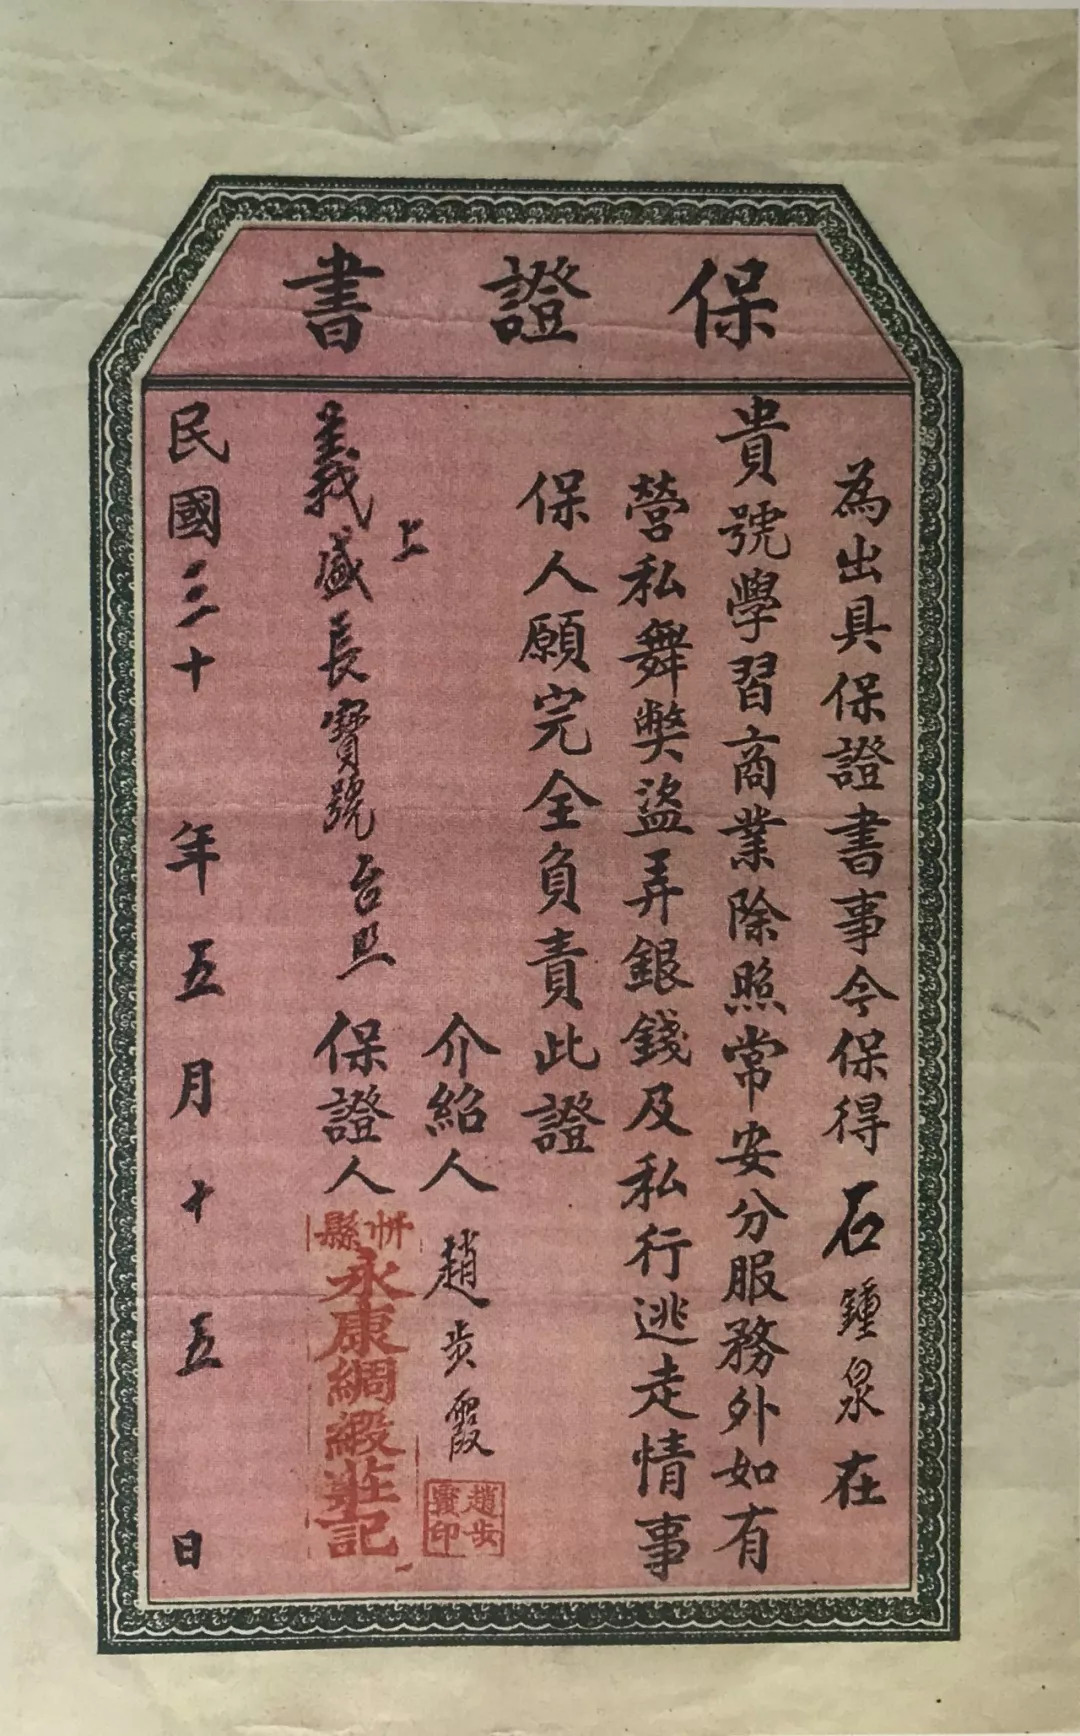 保證書
為出具保證書事今保得石鍾泉在
貴號學習商業除照常安分服務外如有
營私舞弊盜弄銀錢及私行逃走情事
保人願完全負責此證
上
義盛長寶號台照
介紹人趙步霞
趙步霞印
保證人
忻縣
永康綢緞莊記
民國三十年五月十五日